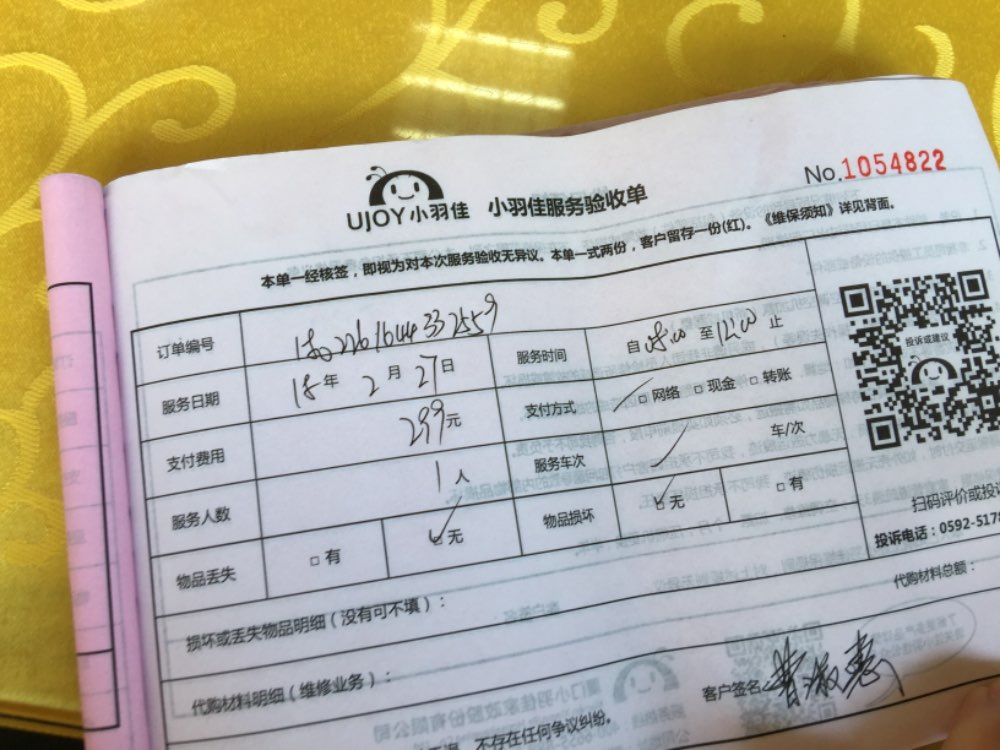 No.1054822
UJOY小羽佳 小羽佳服务验收单
本单一经核签，即视为对本次服务验收无异议。本单一式两份，客户留存一份(红)。《维保须知》详见背面。
订单编号
服务时间 自 08:00 至 12:00 止
服务日期 18 年 2 月 27 日
支付方式 □网络 □现金 □转账
支付费用 299 元
服务车次 车/次
服务人数 1 人
物品损坏 □无 □有
物品丢失 □有 □无
投诉或建议
扫码评价或投
投诉电话：0592-517
损坏或丢失物品明细（没有可不填）：
代购材料总额：
代购材料明细（维修业务）：
客户签名
不存在任何争议纠纷。